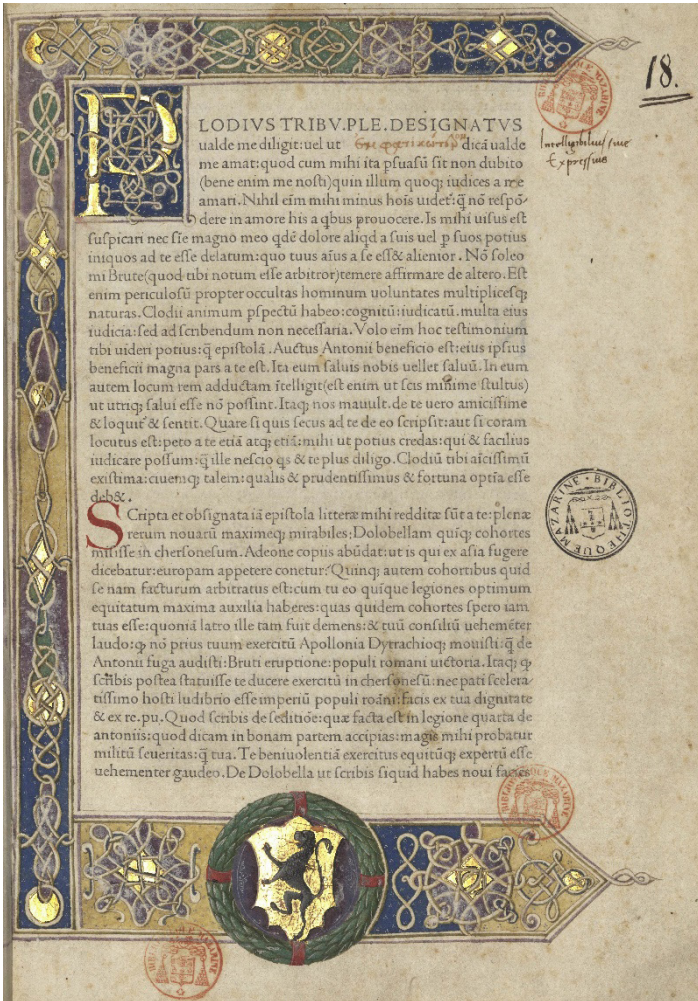 18.
PLODIVS TRIBV.PLE.DESIGNATVS
ualde me diligit:uel ut dicā ualde
Intelligibilius siue
Expressius
me amat:quod cum mihi ita ꝑsuasū sit non dubito
(bene enim me nosti)quin illum quoq; iudices a me
amari. Nihil eīm mihi minus hoīs uidet᷑:q̄ nō respō/
dere in amore his a qbus prouocere. Is mihi uisus est
suspicari nec sīe magno meo qdē dolore aliqd a suis uel ꝑ suos potius
iniquos ad te esse delatum:quo tuus aīus a se ess& alienior. Nō soleo
mi Brute(quod tibi notum esse arbitror)temere affirmare de altero. Est
enim periculosū propter occultas hominum uoluntates multiplicesq;
naturas. Clodii animum ꝑspectū habeo:cognitū:iudicatū. multa eius
iudicia:sed ad scribendum non necessaria. Volo eīm hoc testimonium
tibi uideri potius:q̄ epistolā. Auctus Antonii beneficio est:eius ipsius
beneficii magna pars a te est. Ita eum saluis nobis uellet saluū. In eum
autem locum rem adductam ītelligit(est enim ut scis minime stultus)
ut utriq; salui esse nō possint. Itaq; nos mauult. de te uero amicissime
& loquit᷑ & sentit. Quare si quis secus ad te de eo scripsit:aut si coram
locutus est:peto a te etiā atq; etiā:mihi ut potius credas:qui & facilius
iudicare possum:q̄ ille nescio qs & te plus diligo. Clodiū tibi aīcissimū
existima:ciuemq; talem:qualis & prudentissimus & fortuna optīa esse
deb&.
SCripta et obsignata iā epistola litteræ mihi redditæ sūt a te:plenæ
rerum nouarū maximeq; mirabiles:Dolobellam quīq; cohortes
misisse in chersonesum. Adeone copiis abūdat:ut is qui ex asia fugere
dicebatur:europam appetere conetur? Quinq; autem cohortibus quid
se nam facturum arbitratus est:cum tu eo quīque legiones optimum
equitatum maxima auxilia haberes:quas quidem cohortes spero iam
tuas esse:quoniā latro ille tam fuit demens:& tuū consiliū uehemēter
laudo:ꝙ nō prius tuum exercitū Apollonia Dyrrachioq; mouisti:q̄ de
Antonii fuga audisti:Bruti eruptione:populi romani uictoria. Itaq; ꝙ
scribis postea statuisse te ducere exercitū in chersonesū:nec pati scelera/
tissimo hosti ludibrio esse imperiū populi roāni:facis ex tua dignitate
& ex re.pu. Quod scribis de seditiōe:quæ facta est in legione quarta de
antoniis:quod dicam in bonam partem accipias:magis mihi probatur
militū seueritas:q̄ tua. Te beniuolentiā exercitus equitūq; expertū esse
uehementer gaudeo. De Dolobella ut scribis siquid habes noui facies
BIBLIOTHEQUE MAZARINE
BIBLIOTHEQUE MAZARINE
BIBLIOTHEQUE MAZARINE
BIBLIOTHEQUE MAZARINE